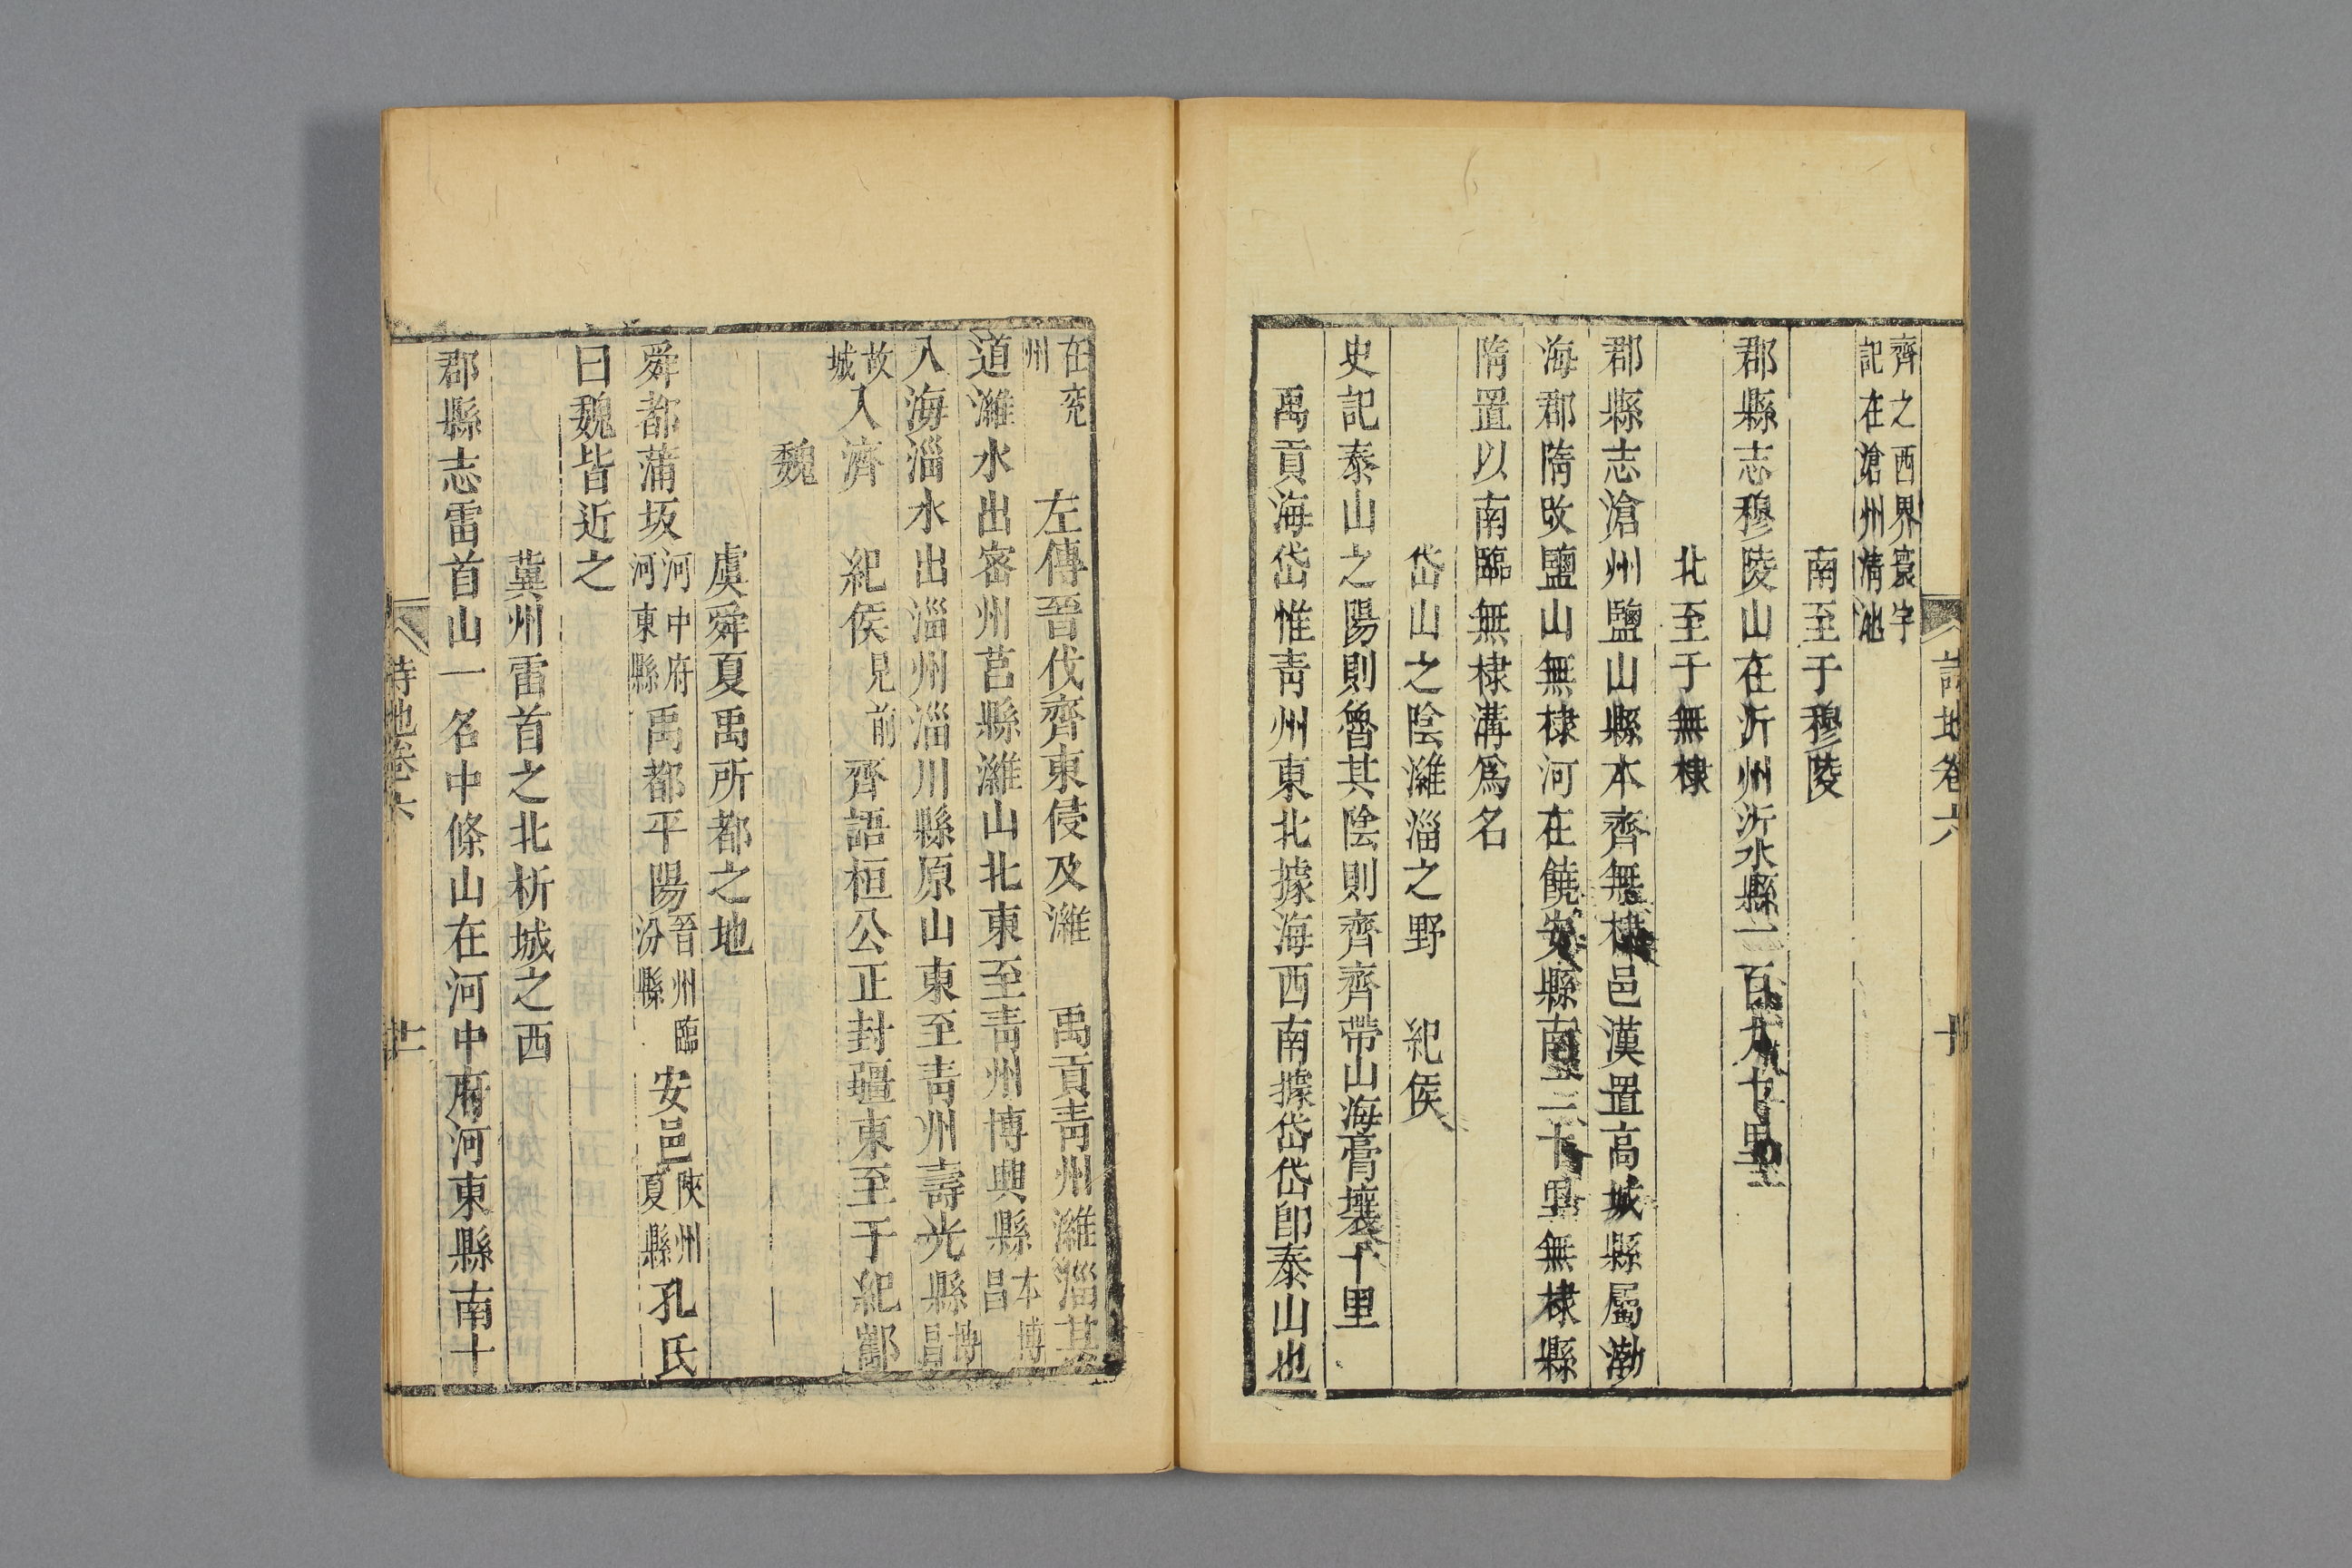 詩地卷六 十
齊之西界寰宇
記在滄州清池
南至于穆陵
郡縣志穆陵山在沂州沂水縣一百九十里
北至于無棣
郡縣志滄州鹽山縣本齊無棣邑漢置高城縣屬渤
海郡隋改鹽山無棣河在饒安縣南二十里無棣縣
隋置以南臨無棣溝爲名
岱山之陰濰淄之野 紀侯
史記泰山之陽則魯其陰則齊齊帶山海膏壤千里
禹貢海岱惟青州東北據海西南據岱岱卽泰山也
在兖
州
左傳晉伐齊東侵及濰 禹貢青州濰淄其
道濰水出密州莒縣濰山北東至青州博興縣本博
昌
入海淄水出淄州淄川縣原山東至青州壽光縣博
昌
故
城入濟 紀侯見前 齊語桓公正封疆東至于紀酅
魏
虞舜夏禹所都之地
舜都蒲坂河中府
河東縣禹都平陽晉州臨
汾縣安邑陝州
夏縣孔氏
曰魏皆近之
冀州雷首之北析城之西
郡縣志雷首山一名中條山在河中府河東縣南十
詩地卷六 十一